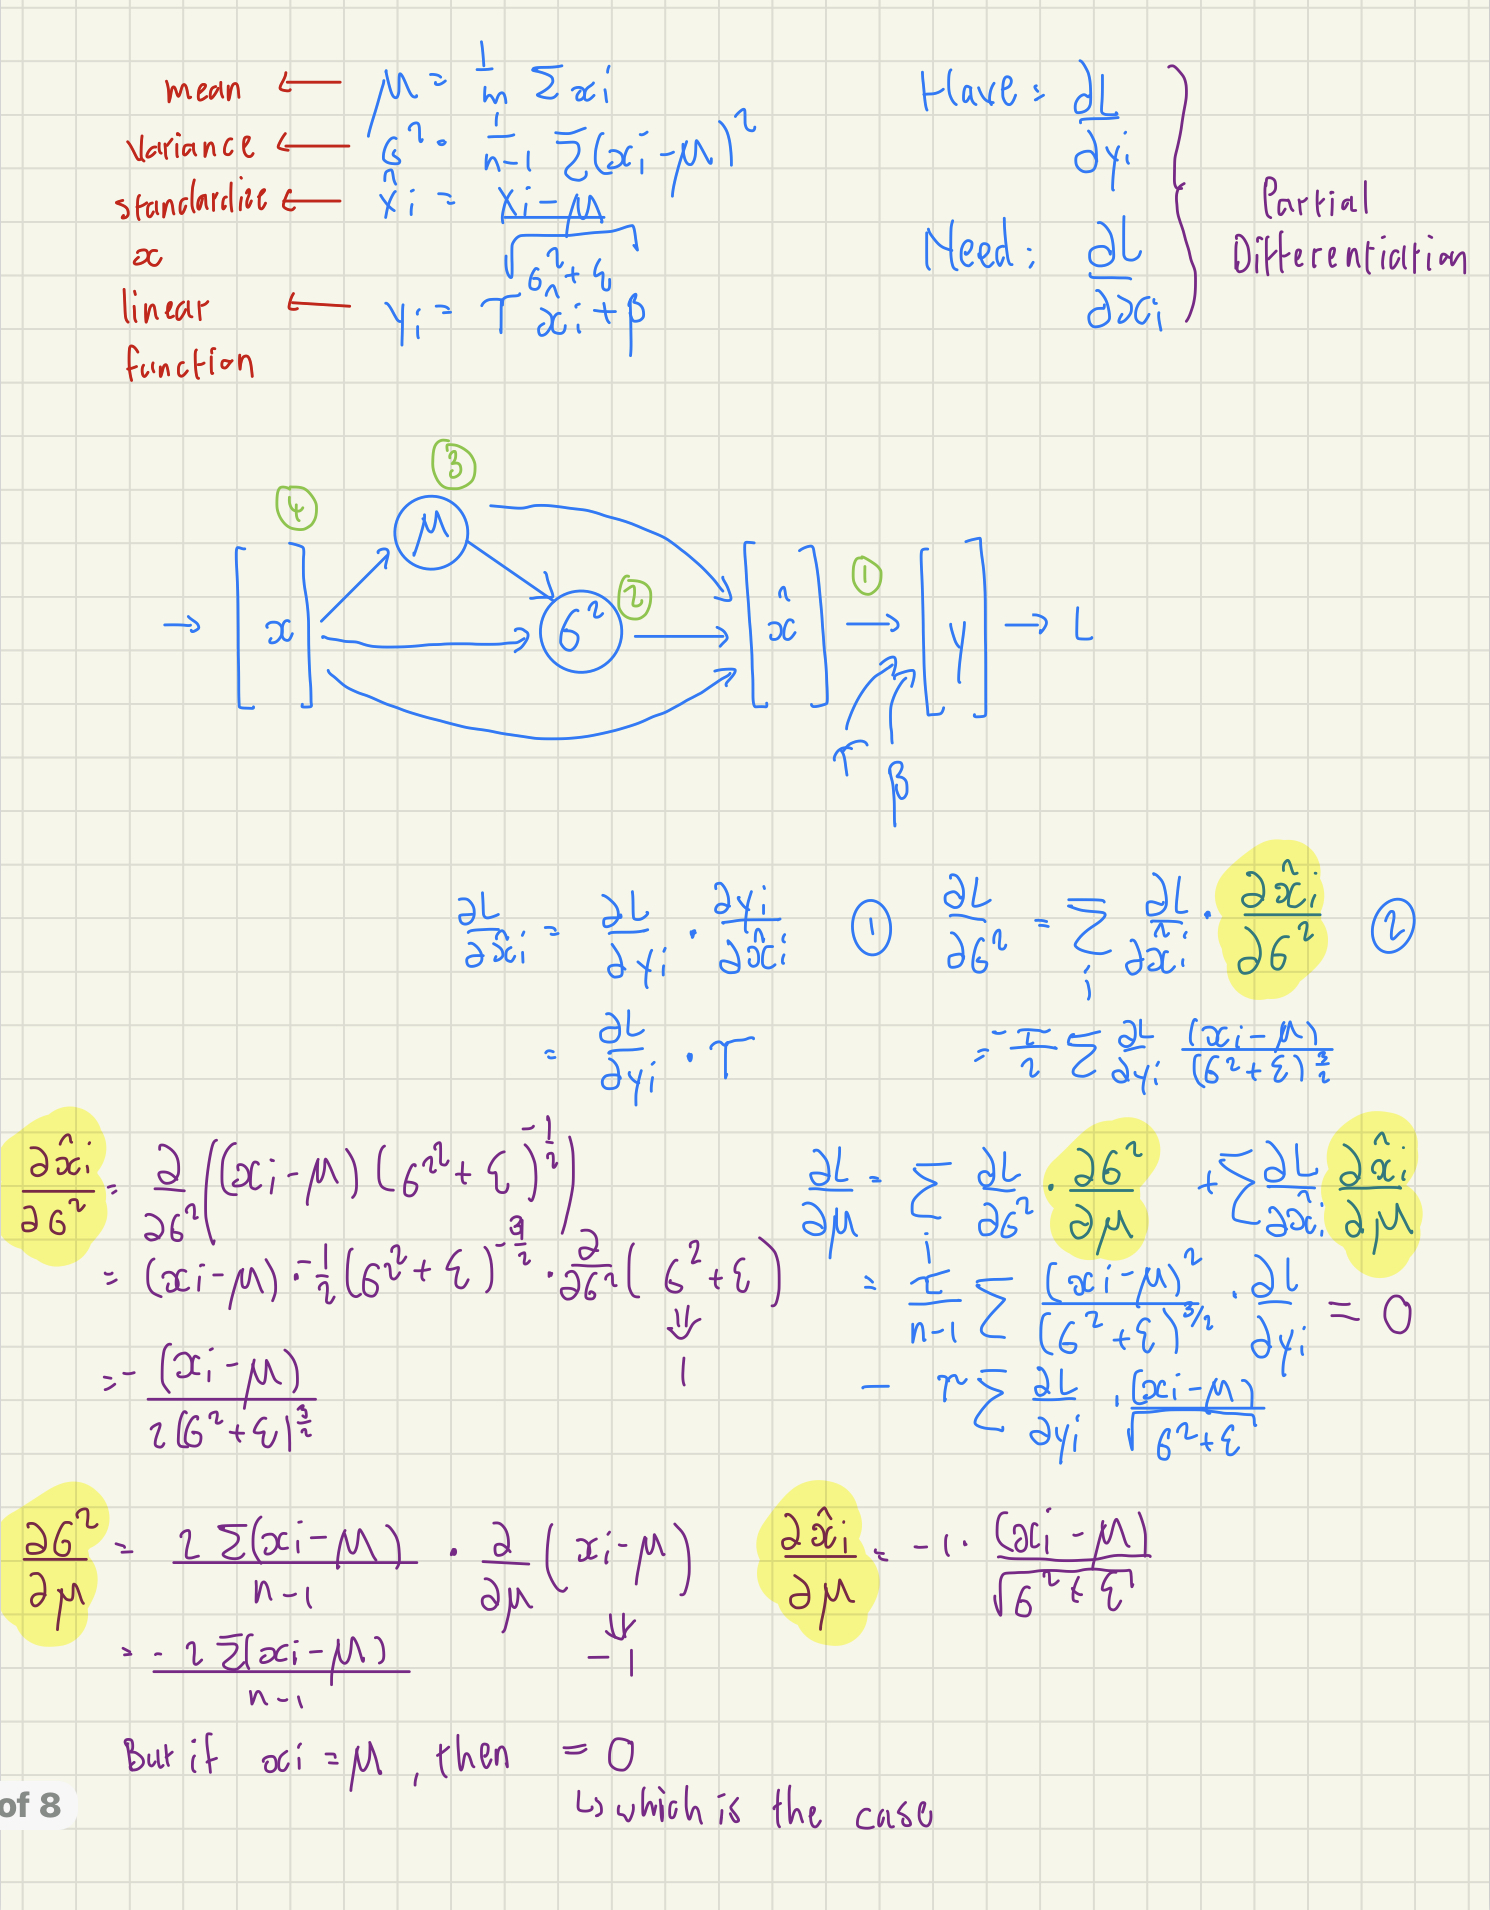 mean ← μ = 1/m Σ xi
Variance ← σ² = 1/n-1 Σ(xi-μ)²
standardize x ← x̂i = xi-μ / √σ²+ε
linear function ← yi = γ x̂i + β
Have: ∂L/∂yi
Need: ∂L/∂xi
Partial
Differentiation
④ ③
μ
② ①
→ [x] σ² [x̂] → [y] → L
γ β
∂L/∂x̂i = ∂L/∂yi · ∂yi/∂x̂i ①
= ∂L/∂yi · γ
∂L/∂σ² = Σi ∂L/∂x̂i · ∂x̂i/∂σ² ②
= -γ/2 Σ ∂L/∂yi (xi-μ)/(σ²+ε)^3/2
∂x̂i/∂σ² = ∂/∂σ² ((xi-μ)(σ²+ε)^-1/2)
= (xi-μ) · -1/2 (σ²+ε)^-3/2 · ∂/∂σ² (σ²+ε)
⇓
1
= - (xi-μ) / 2(σ²+ε)^3/2
∂L/∂μ = Σi ∂L/∂σ² · ∂σ²/∂μ + Σ ∂L/∂x̂i ∂x̂i/∂μ
= γ/n-1 Σ (xi-μ)²/(σ²+ε)^3/2 · ∂L/∂yi = 0
- γ Σ ∂L/∂yi · (xi-μ)/√σ²+ε
∂σ²/∂μ = 2 Σ(xi-μ)/n-1 · ∂/∂μ (xi-μ)
⇓
-1
= -2 Σ(xi-μ)/n-1
∂x̂i/∂μ = -1 · (xi-μ)/√σ²+ε
But if xi = μ, then = 0
↳ which is the case
of 8